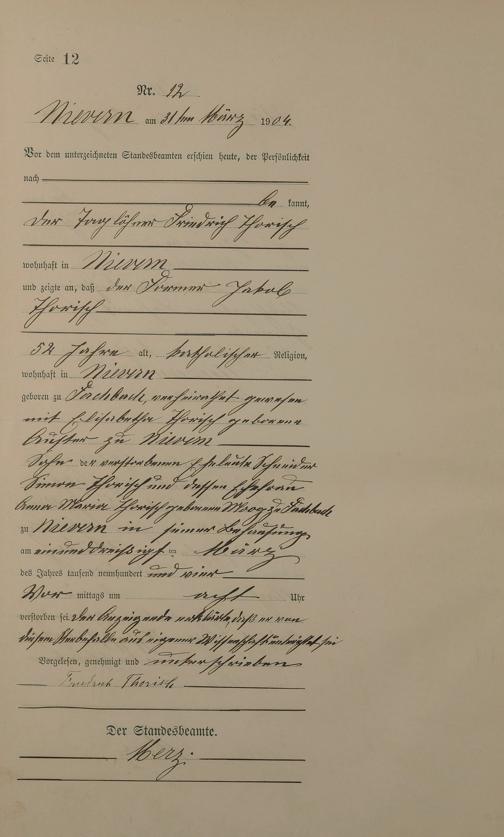 Seite 12
Nr. 12
Nievern am 31ten März 1904.
Vor dem unterzeichneten Standesbeamten erschien heute, der Persönlichkeit
nach
be kannt,
der Taglöhner Friedrich Thorisch
wohnhaft in Nievern
und zeigte an, daß der Former Jakob
Thorisch
52 Jahre alt, katholischer Religion,
wohnhaft in Nievern
geboren zu Fachbach, verheirathet gewesen
mit Elisabetha Thorisch geborene
zu Nievern
Sohn der verstorbenen Eheleute Schneider
Simon Thorisch und dessen Ehefrau
Anna Maria Thorisch geborene Moog zu Fachbach
zu Nievern in seiner Behausung
am einunddreißigst en März
des Jahres tausend neunhundert und vier
Vor mittags um acht Uhr
verstorben sei. Der Anzeigende erklärte, daß er von
diesem Sterbefalle aus eigener Wissenschaft unterrichtet sei
Vorgelesen, genehmigt und unterschrieben
Friedrich Thorisch
Der Standesbeamte.
Merz.